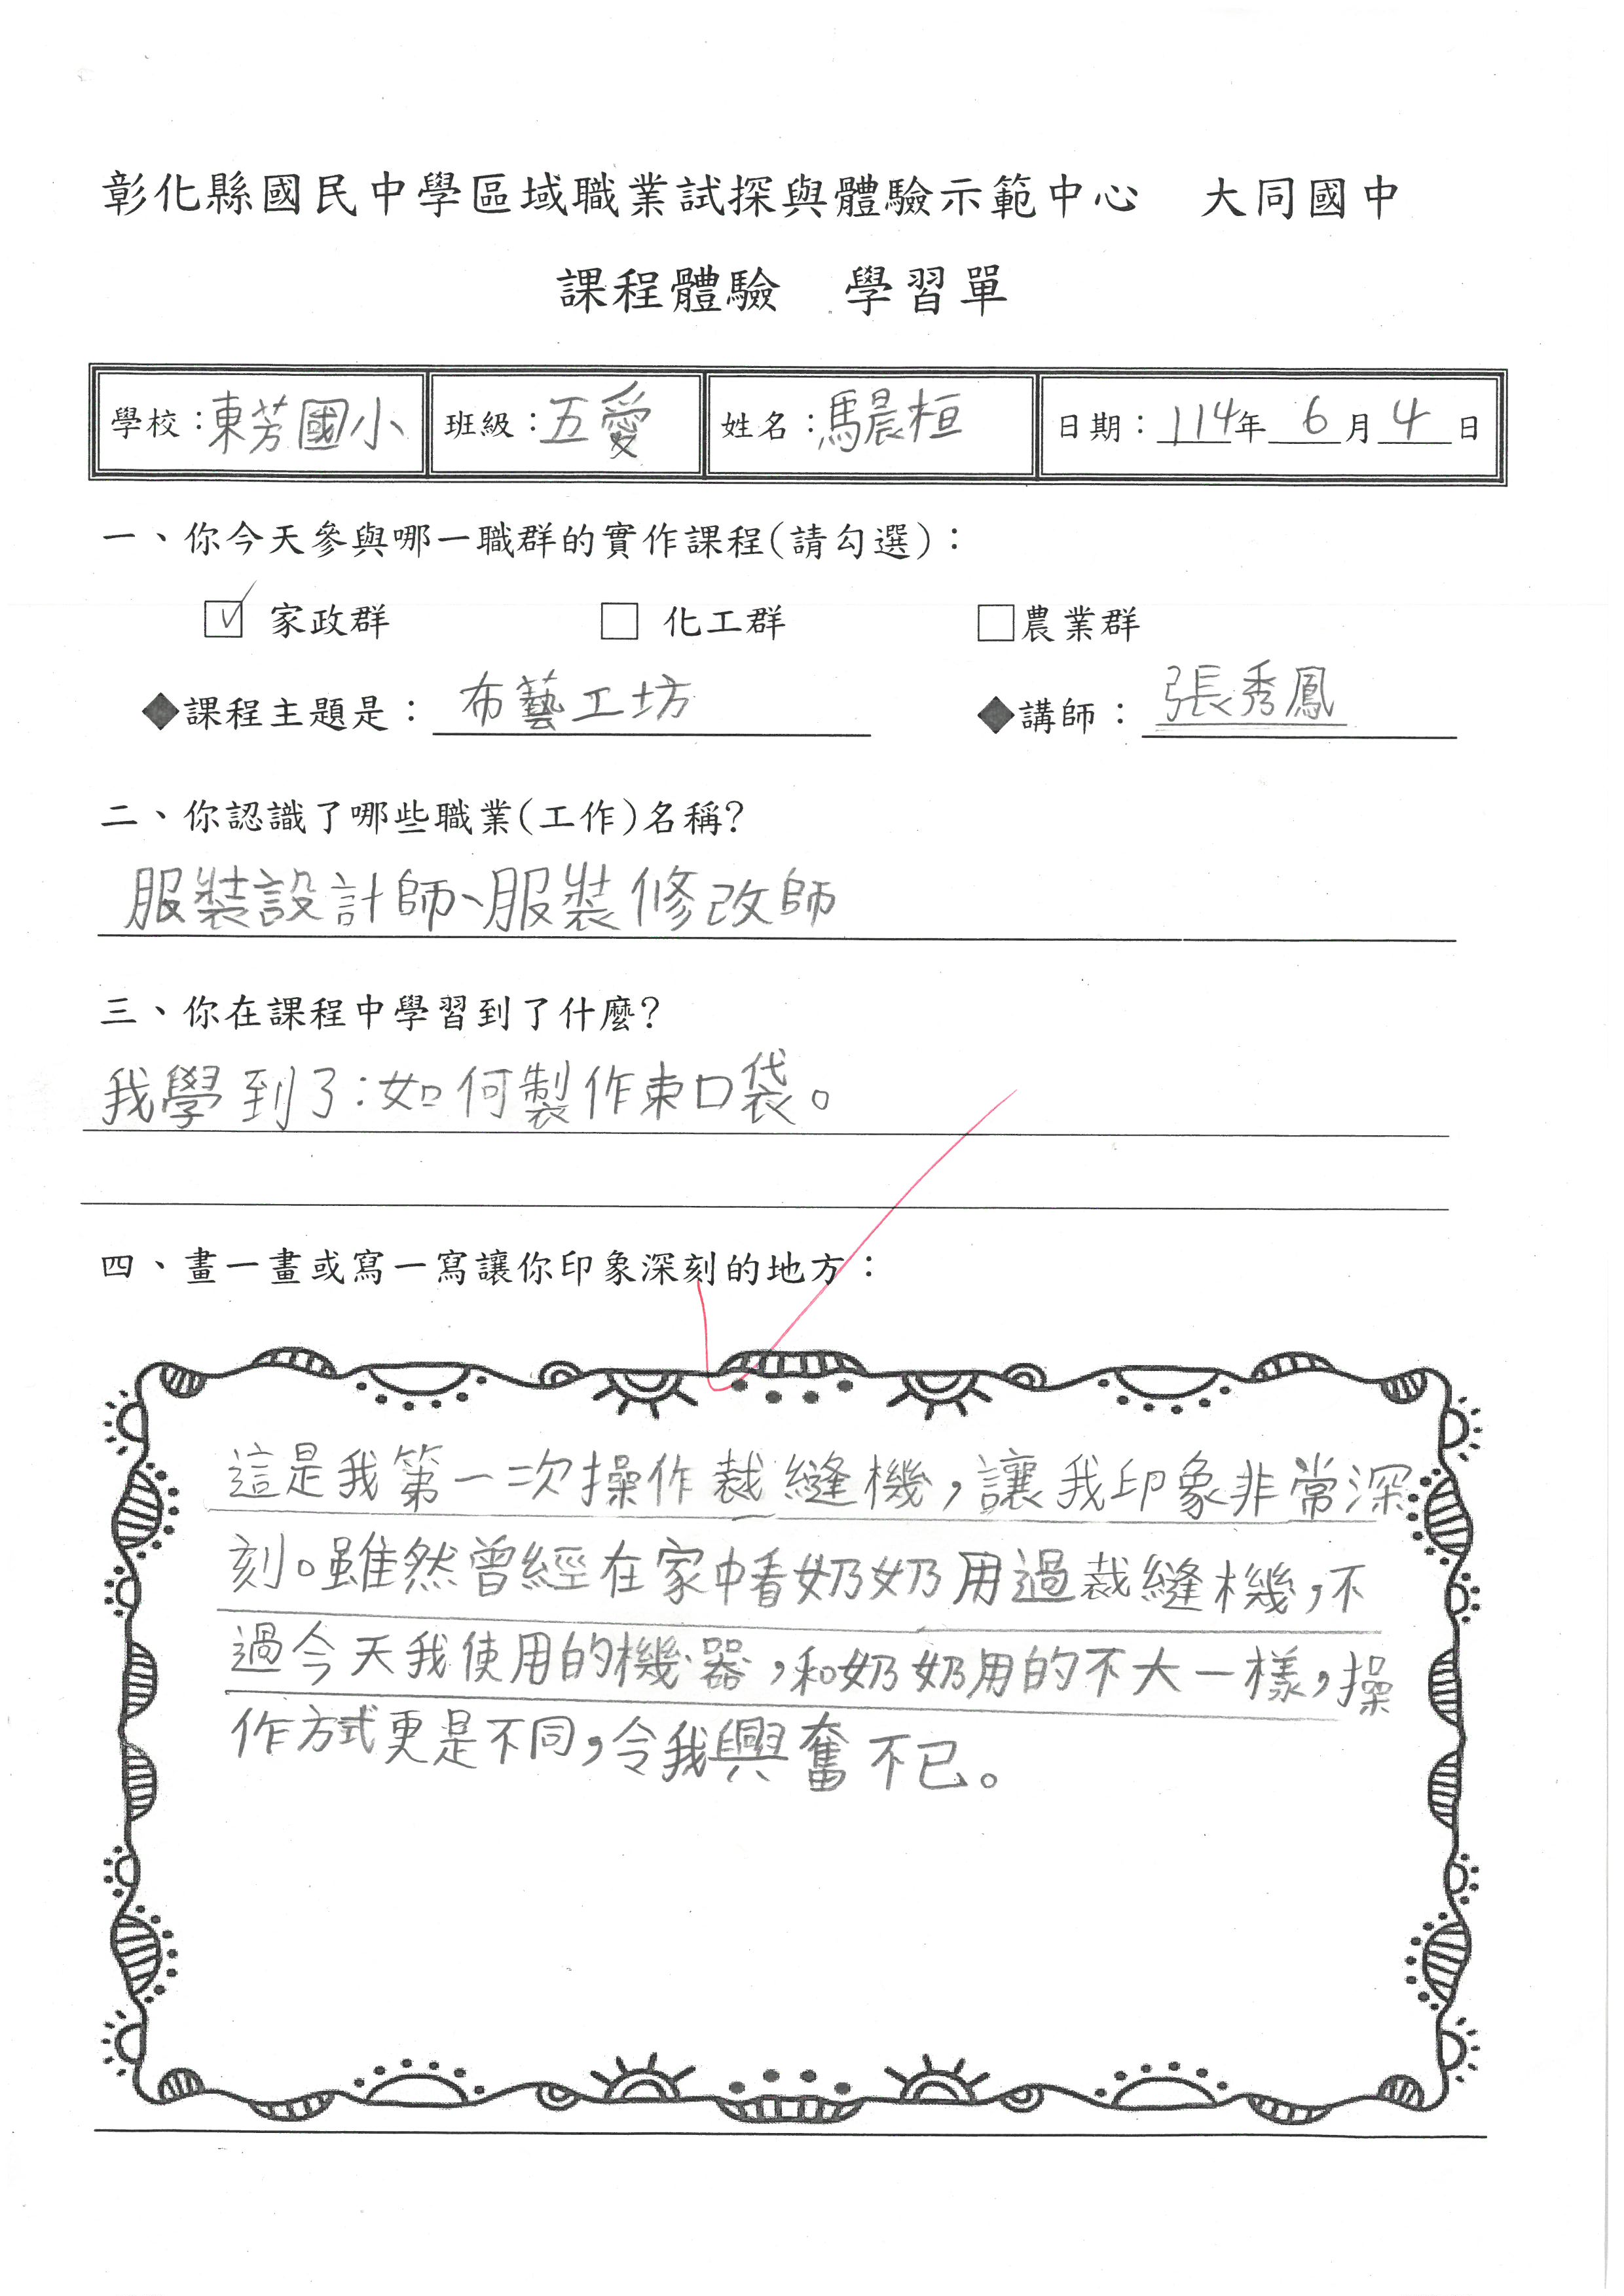 彰化縣國民中學區域職業試探與體驗示範中心　大同國中
課程體驗　學習單
學校：東芳國小　班級：五愛　姓名：馬晨桓　日期：114年6月4日
一、你今天參與哪一職群的實作課程(請勾選)：
☑ 家政群　□ 化工群　□農業群
◆課程主題是：布藝工坊　◆講師：張秀鳳
二、你認識了哪些職業(工作)名稱?
服裝設計師、服裝修改師
三、你在課程中學習到了什麼?
我學到了:如何製作束口袋。
四、畫一畫或寫一寫讓你印象深刻的地方：
這是我第一次操作裁縫機，讓我印象非常深
刻。雖然曾經在家中看奶奶用過裁縫機，不
過今天我使用的機器，和奶奶用的不大一樣，操
作方式更是不同，令我興奮不已。